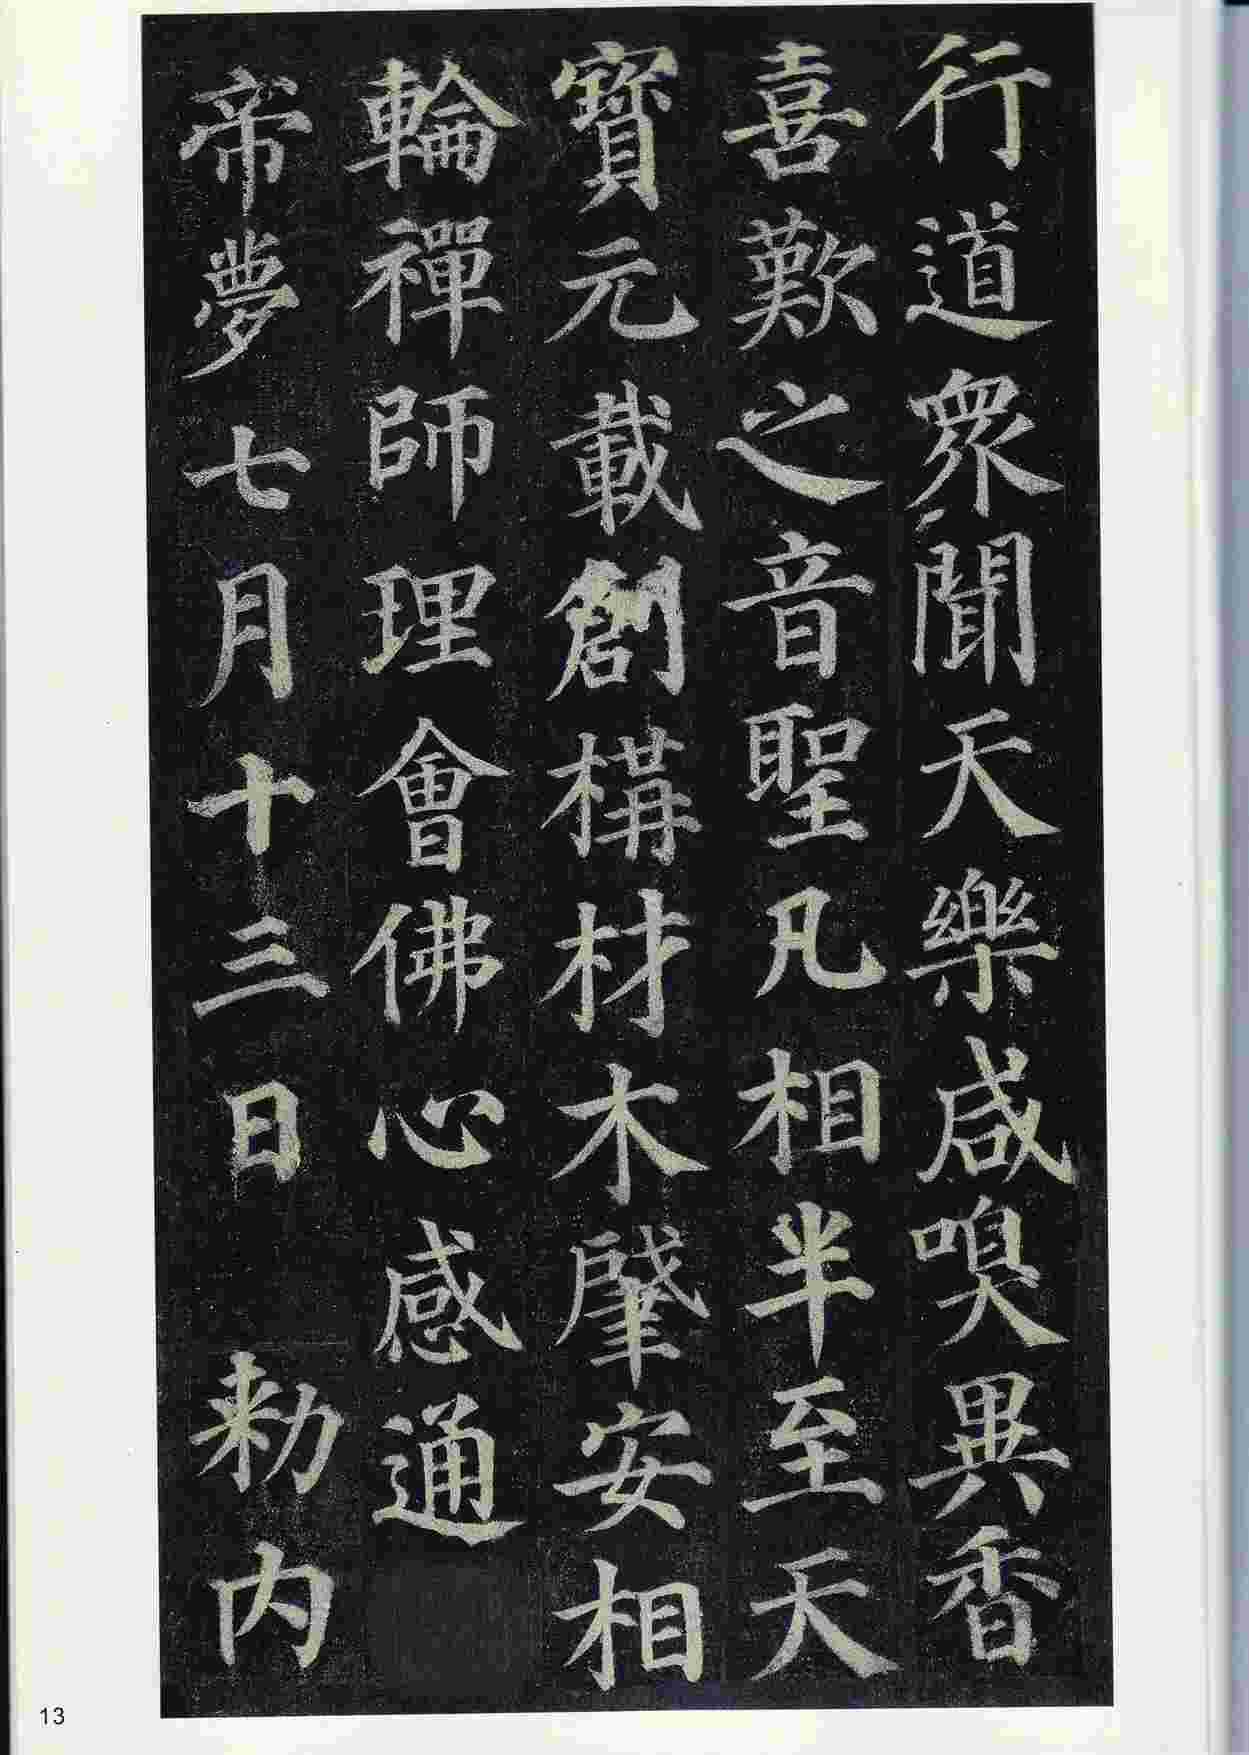 行道眾聞天樂咸嗅異香
喜歎之音聖凡相半至天
寶元載創構材木肇安相
輪禪師理會佛心感通
帝夢七月十三日 勑內
13